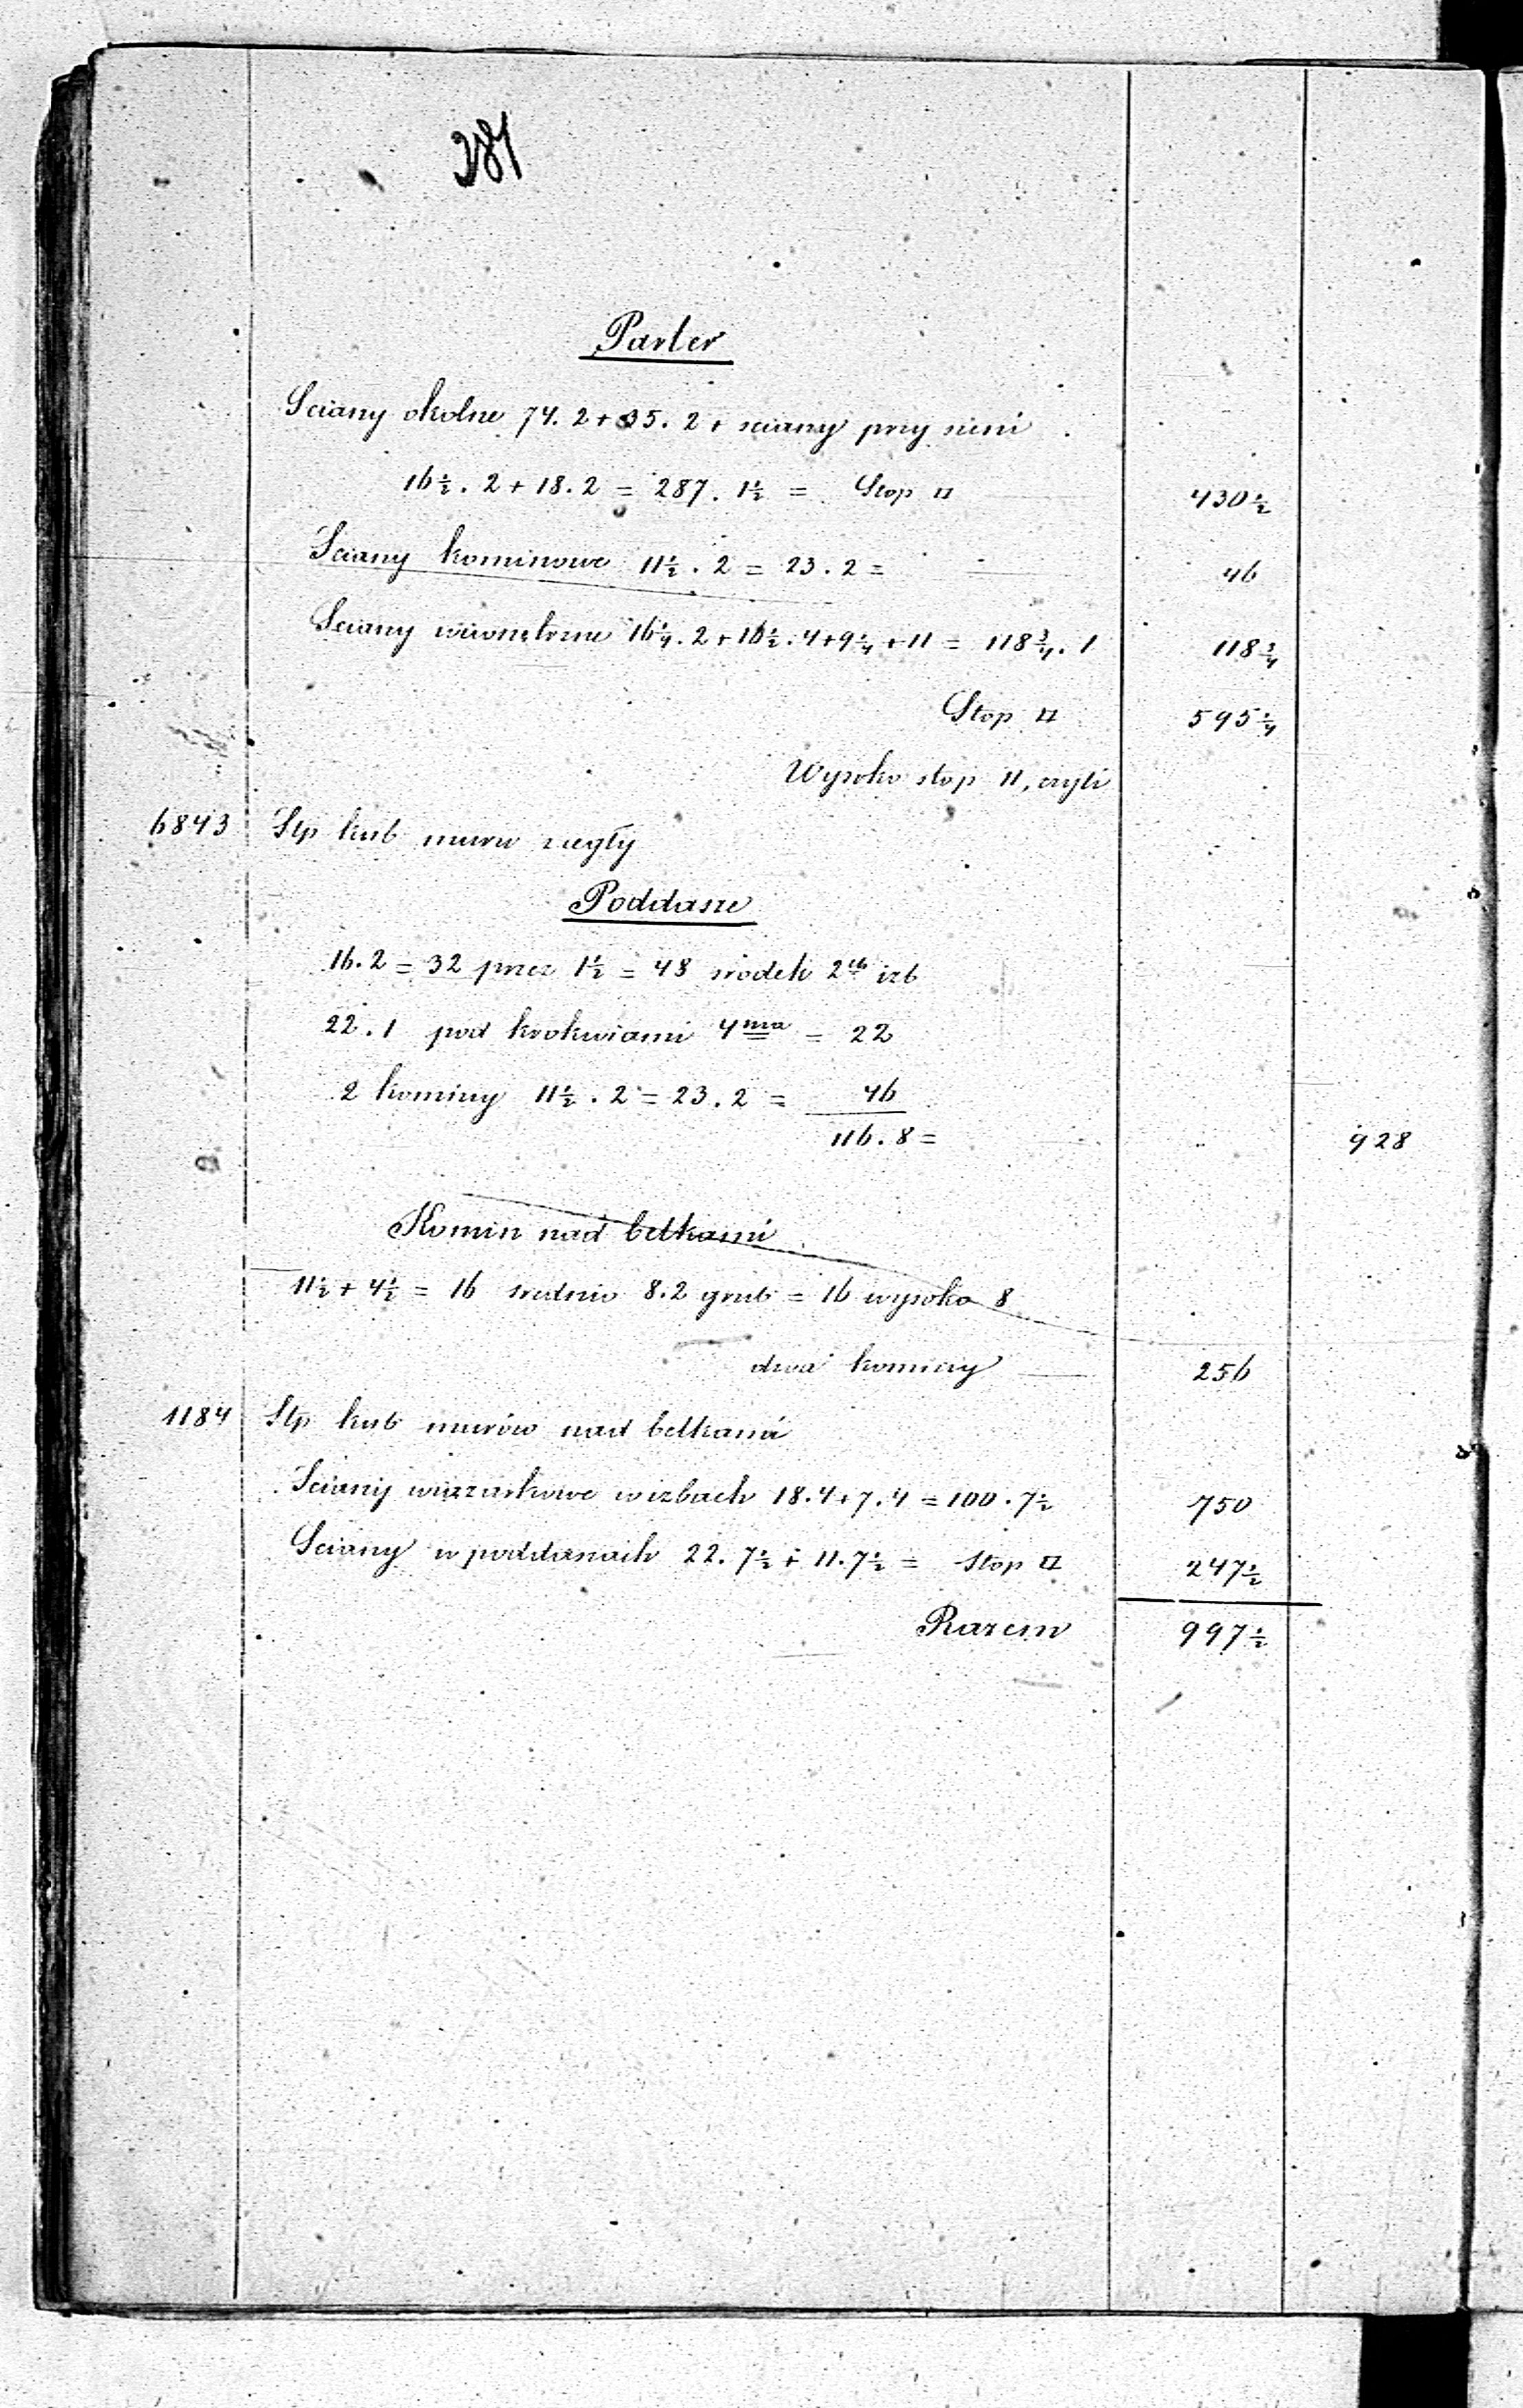 381
Parter
Sciany okolne 74. 2 + 35. 2 + sciany przy sieni
16½. 2 + 18. 2 = 287. 1½ = Stop □ 430½
Sciany kominowe 11½. 2 = 23. 2 = 46
Sciany wewnetrzne 16¼. 2 + 16½. 4 + 9¼ + 11 = 118¾. 1 118¾
Stop □ 595¼
Wysoko stop 11, czyli
6843 Stp kub muru z cegły
Poddasze
16. 2 = 32 przez 1½ = 48 srodek 2ch izb
22. 1 pod krokwiami 4ma = 22
2 kominy 11½. 2 = 23. 2 = 46
116. 8 = 928
Komin nad belkami
11½ + 4½ = 16 srednio 8. 2 grub = 16 wysoko 8
dwa kominy 256
1184 Stp kub murów nad belkami
Sciany w izbach 18. 4 + 7. 4 = 100. 7½ 750
Sciany w poddaszach 22. 7½ + 11. 7½ = Stop □ 247½
Razem 997½